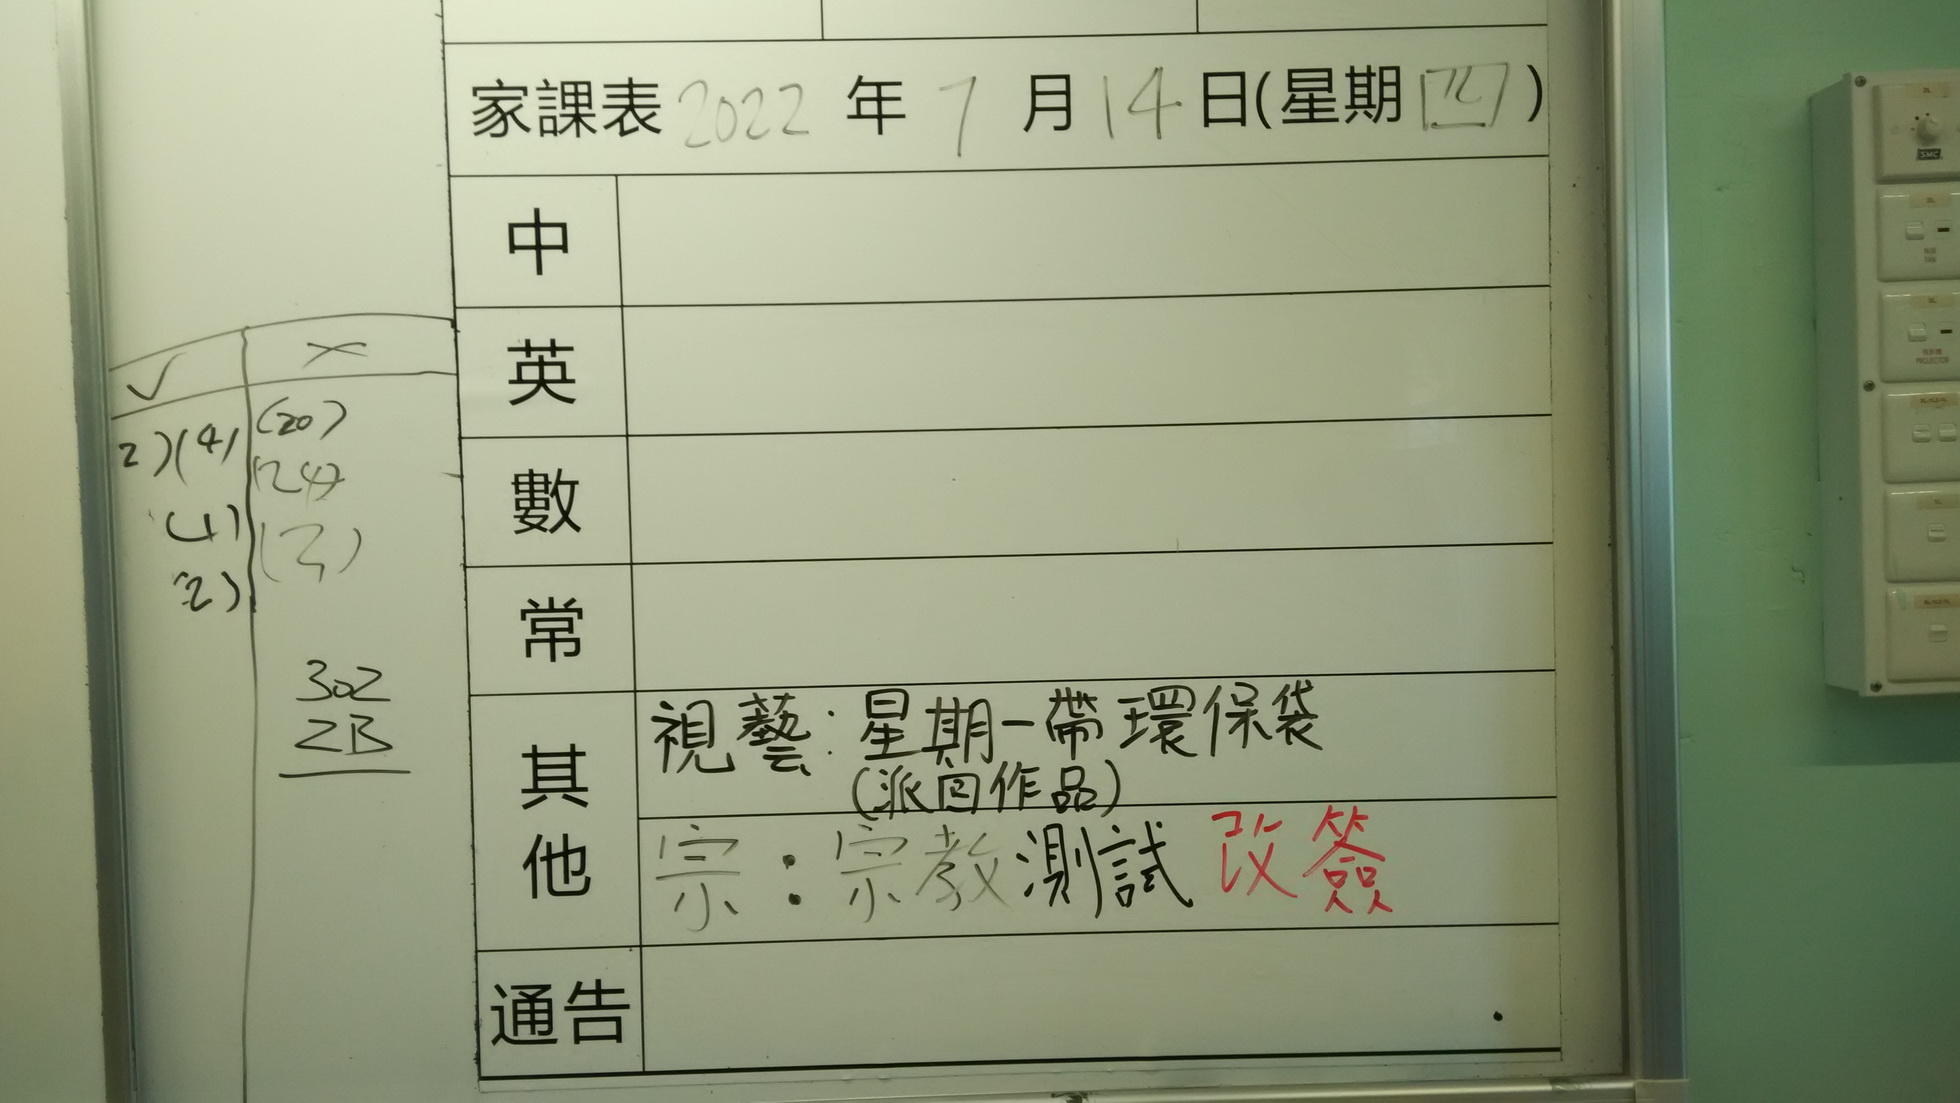 家課表 2022 年 7 月 14 日(星期四)
中
英
數
常
其他
視藝：星期一帶環保袋
(派回作品)
宗：宗教測試 改簽
通告
✓ ×
2)(4) (20)
(24)
(1) (3)
(2)
302
2B
SMC
FAN
PROJECTOR